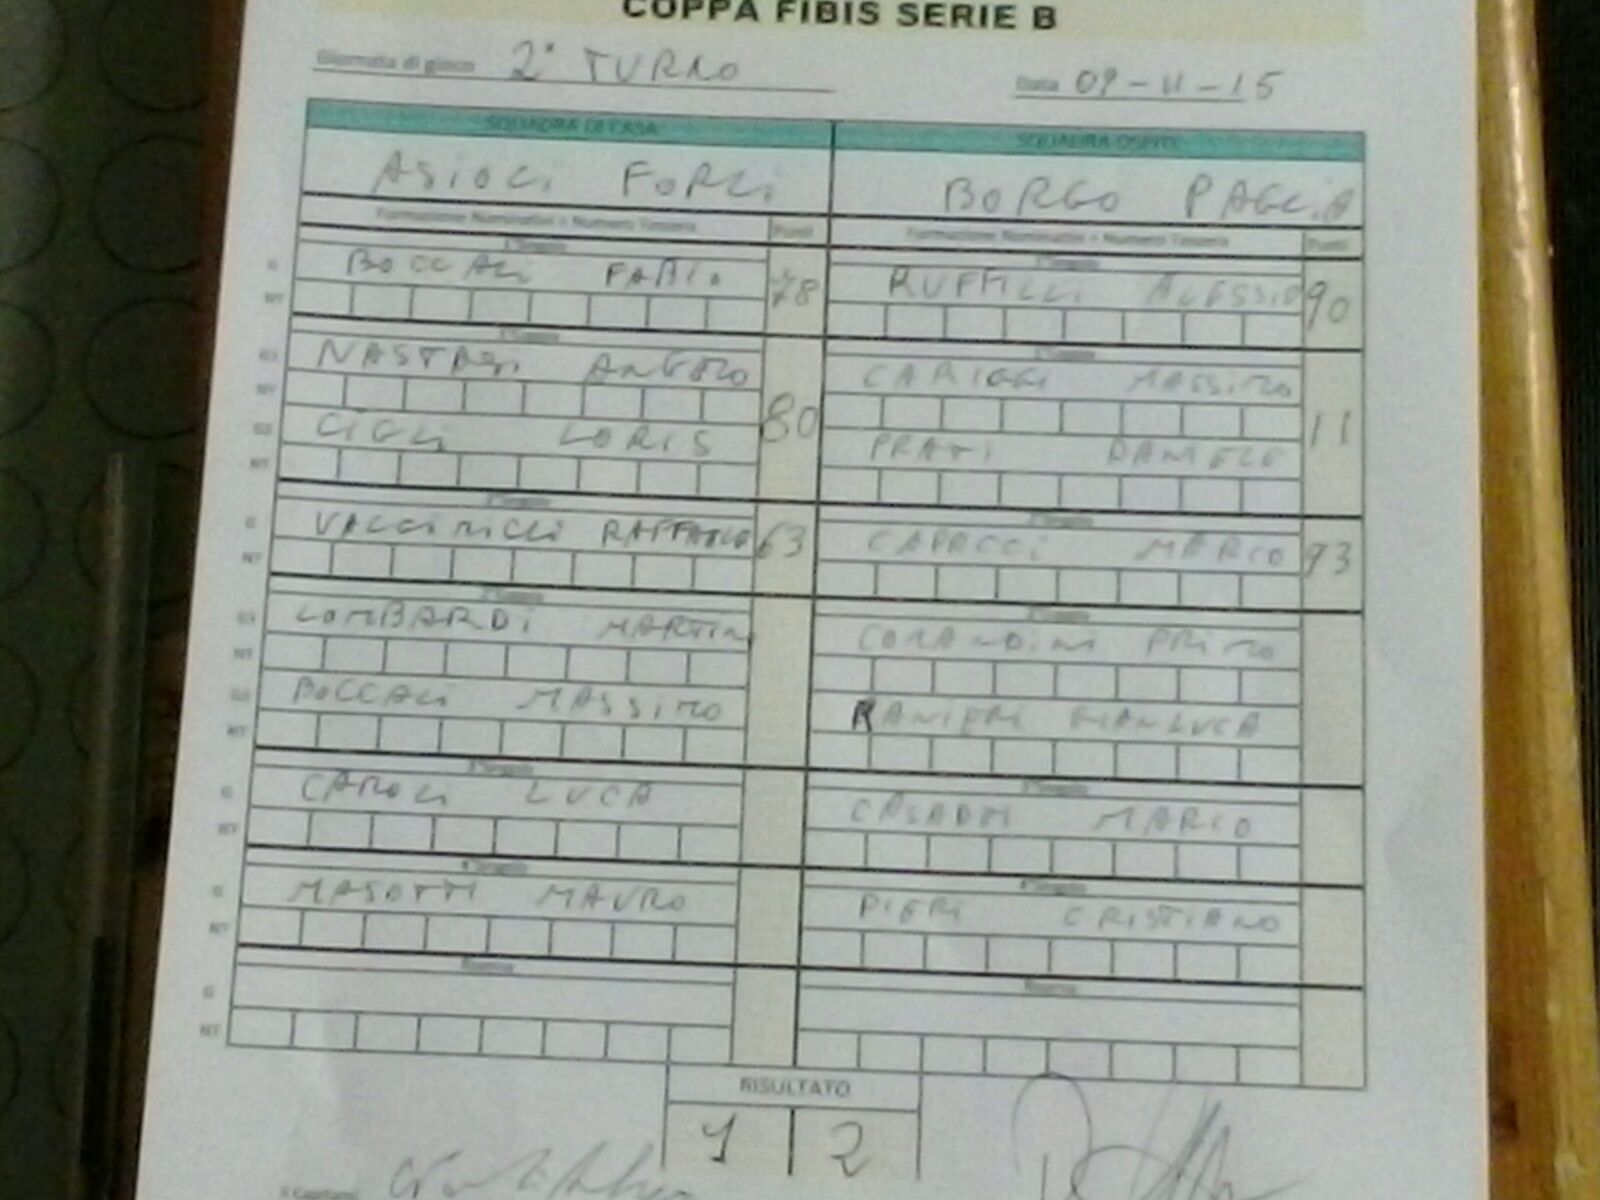 COPPA FIBIS SERIE B
Giornata di gioco 2° TURNO Data 09-11-15
SQUADRA DI CASA SQUADRA OSPITE
ASIOLI FORLI BORGO PAGLIA
Formazione Nominativi - Numero Tessera Punti Formazione Nominativi - Numero Tessera Punti
BOCCALI FABIO 78 RUFFILLI ALESSIO 90
NASTASI ANGELO 80 CARIGGI MASSIMO 11
CIGLI LORIS PRATI DANIELE
RAFFAELE 63 CAPACCI MARIO 93
LOMBARDI MARTIN COMANDINI PRIMO
BOCCALI MASSIMO RANIERI GIANLUCA
CAROLI LUCA CASADEI MARIO
MASOTTI MAURO PIERI CRISTIANO
Riserva Riserva
RISULTATO
1 2
Il Capitano